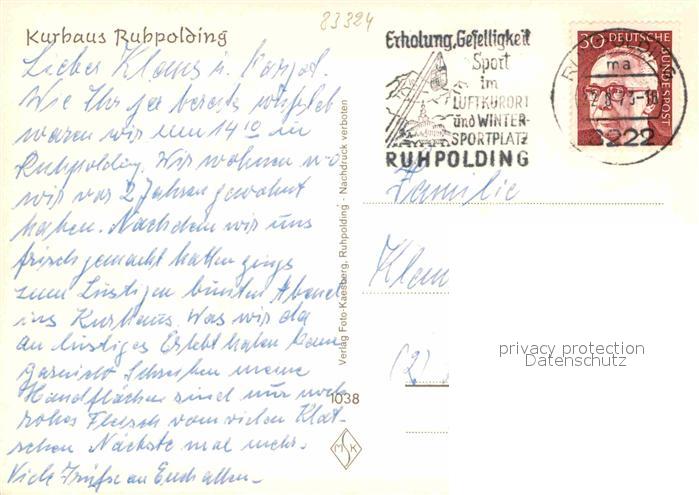 83324
Kurhaus Ruhpolding
Lieber Klaus u.
Wie Ihr ja bereits
waren wir um 14 10 in
Ruhpolding. Wir wohnen wo
wir vor 2 Jahren gewohnt
haben. Nachdem wir uns
frisch gemacht hatten gings
zum Lustigen bunten Abend
ins Kurhaus. Was wir da
an lustiges Erlebt haben kann
gar nicht Schreiben meine
Handflächen sind nur noch
rohes Fleisch vom vielen Klat-
schen Nächste mal mehr.
Viele Grüße an Euch allen-
Verlag Foto-Kaesberg, Ruhpolding - Nachdruck verboten
1038
MSK
Erholung, Geselligkeit
Sport
im
LUFTKURORT
und WINTER-
SPORTPLATZ
RUHPOLDING
30 DEUTSCHE
BUNDESPOST
ma
8222
Familie
Klau
(2)
privacy protection
Datenschutz